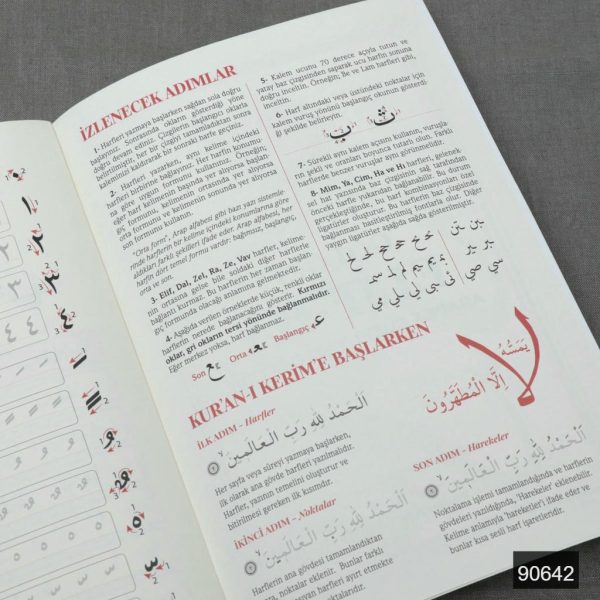 İZLENECEK ADIMLAR
1- Harfleri yazmaya başlarken sağdan sola doğru
başlayınız. Sonrasında okların gösterdiği yöne
doğru devam ediniz. Çizgilerin başlangıcı oklarla
belirtilmiştir, her bir çizgiyi tamamladıktan sonra
kaleminizi kaldırarak bir sonraki harfe geçiniz.
2- Harfleri yazarken, aynı kelime içindeki
harfleri birbirine bağlayınız. Her harfin konumu
na göre uygun formunu kullanınız. Örneğin;
eğer harf kelimenin başında yer alıyorsa başlan
gıç formunu, kelimenin ortasında yer alıyorsa
orta formunu ve kelimenin sonunda yer alıyorsa
son formunu kullanınız.
"Orta form", Arap alfabesi gibi bazı yazı sistemle-
rinde harflerin bir kelime içindeki konumlarına göre
aldıkları farklı şekilleri ifade eder. Arap alfabesi, her
harfin dört temel formu vardır: bağımsız, başlangıç,
orta ve son.
3- Elif, Dal, Zel, Ra, Ze, Vav harfler, kelime-
nin ortasına gelse bile soldaki diğer harflerle
bağlantı kurmaz. Bu harflerin her zaman başlan
gıç formunda olacağı anlamına gelmektedir.
4- Aşağıda verilen örneklerde küçük, renkli oklar
harflerin nerede bağlanacağını gösterir. Kırmızı
oklar, gri okların tersi yönünde bağlanmalıdır.
Eğer merkez yoksa, harf bağlanmaz.
Son ـع Orta ـعـ Başlangıç عـ
5- Kalem ucunu 70 derece açıyla tutun ve
yatay baz çizgisinden saparak ucu harfin sonuna
doğru inceltin. Örneğin; Be ve Lam harfleri gibi,
6- Harf altındaki veya üstündeki noktalar için
kalem vuruş yönünü başlangıç okunun gösterdi
ği şekilde belirleyin.
7- Sürekli aynı kalem açısını kullanın, vuruşla
rın şekli ve oranları boyunca tutarlı olun. Farklı
harflerde benzer vuruşlar aynı görünmelidir.
8- Mim, Ya, Cim, Ha ve Hı harfleri, gelenek
sel hat yazısında baz çizginin sağ tarafından
önceki harfle yukarıdan bağlanabilir. Bu durum
gerçekleştiğinde, bu harf kombinasyonları özel
ligatürler oluşturur. Bu harflerin baz çizgisinde
bağlanması basitleştirilmiş fontlarla olur. Diğer
yaygın ligatürler aşağıda sağda gösterilmiştir.
KUR'AN-I KERİM'E BAŞLARKEN
İLK ADIM - Harfler
اَلْحَمْدُ لِلّٰهِ رَبِّ الْعَالَمِينَ
Her sayfa veya süreyi yazmaya başlarken,
ilk olarak ana gövde harfleri yazılmalıdır.
Harfler, yazının temelini oluşturur ve
bitirilmesi gereken ilk kısımdır.
İKİNCİ ADIM - Noktalar
اَلْحَمْدُ لِلّٰهِ رَبِّ الْعَالَمِينَ
Harflerin ana gövdesi tamamlandıktan
sonra, noktalar eklenir. Bunlar farklı
harfleri ayırt etmekte
لَا يَمَسُّهُ
اِلَّا الْمُطَهَّرُونَ
SON ADIM - Harekeler
اَلْحَمْدُ لِلّٰهِ رَبِّ الْعَالَمِينَ
Noktalama işlemi tamamlandığında ve harflerin
gövdeleri yazıldığında, 'Harekeler' eklenebilir.
Kelime anlamıyla 'hareketler'i ifade eder ve
bunlar kısa sesli harf işaretleridir.
90642